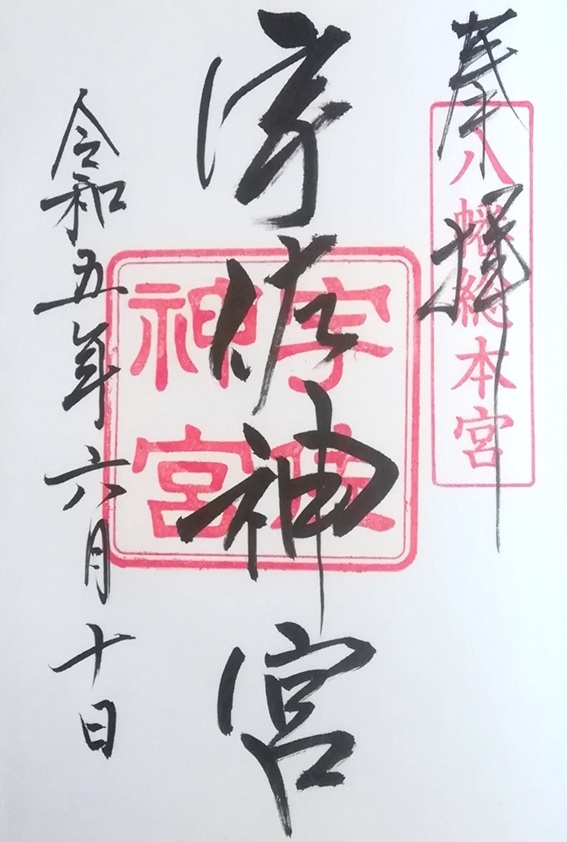 奉拝
八幡総本宮
宇佐神宮
宇佐神宮
令和五年六月十日